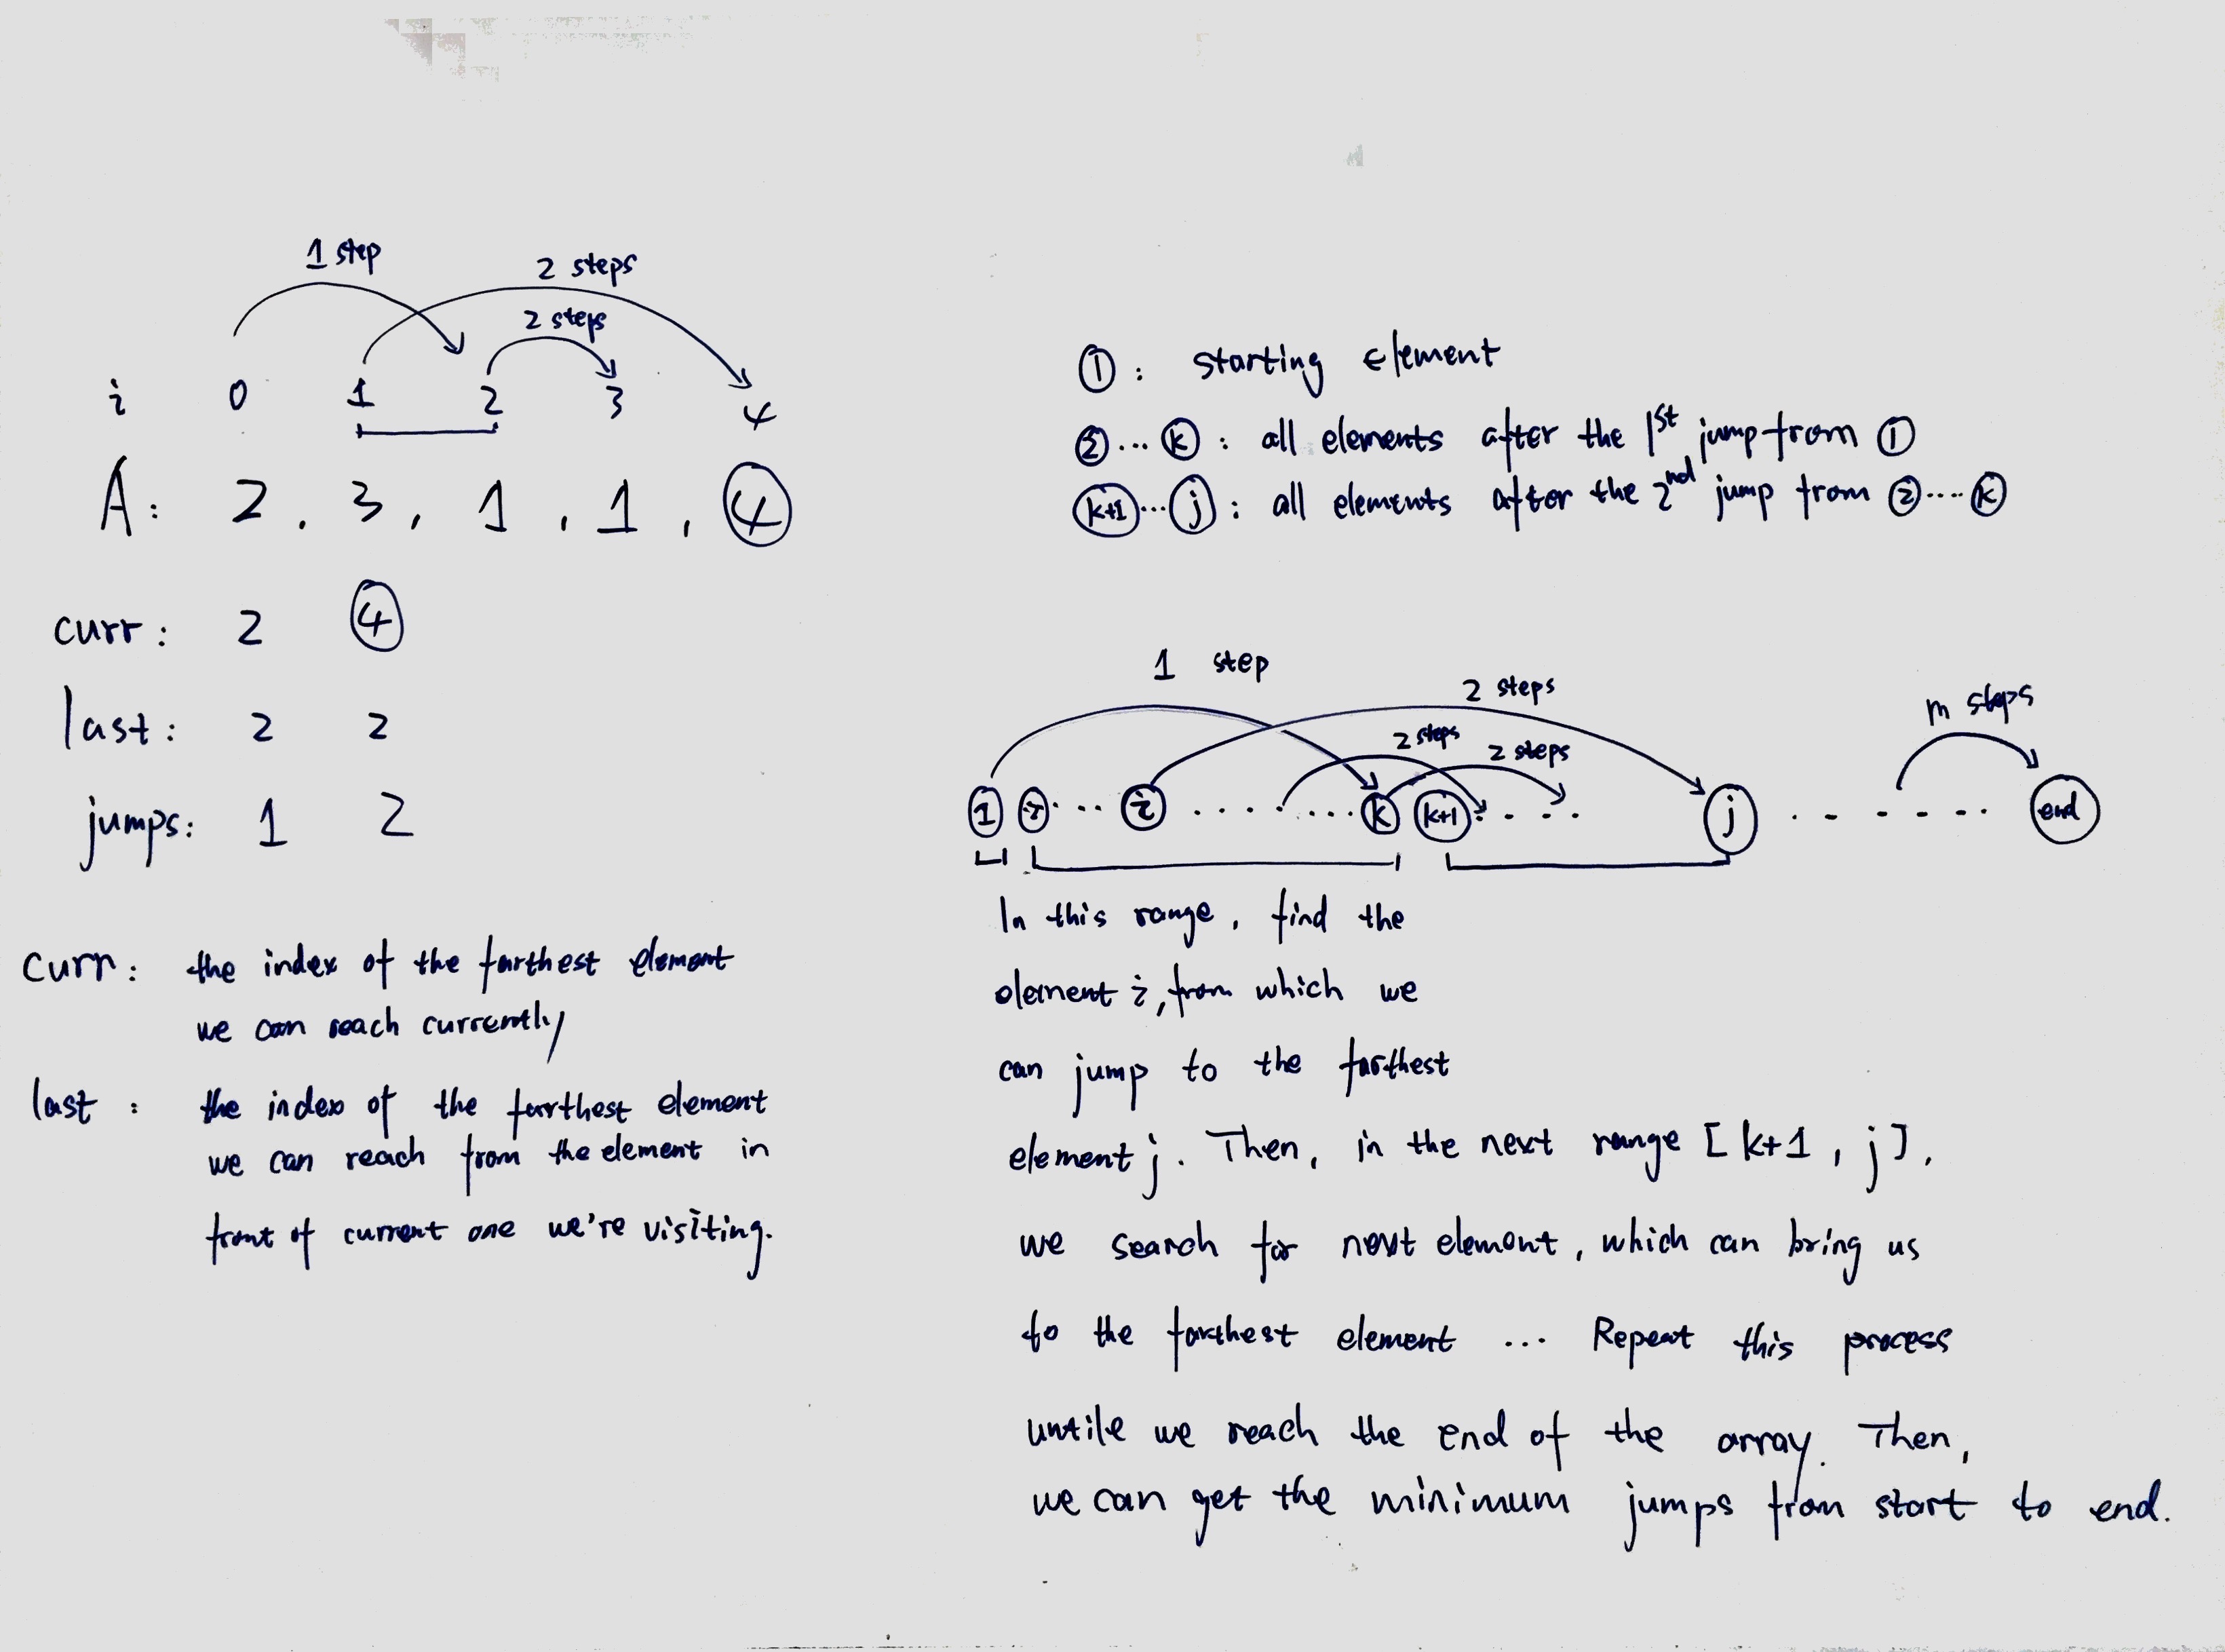 1 step
2 steps
2 steps
i 0 1 2 3 4
A: 2, 3, 1, 1, 4
curr: 2 4
last: 2 2
jumps: 1 2
curr: the index of the farthest element
we can reach currently
last: the index of the farthest element
we can reach from the element in
front of current one we're visiting.
1: starting element
2...k: all elements after the 1st jump from 1
k+1...j: all elements after the 2nd jump from 2....k
1 step
2 steps
m steps
2 steps
2 steps
1 2 ... i ........ k k+1 .... j ...... end
In this range, find the
element i, from which we
can jump to the farthest
element j. Then, in the next range [k+1, j],
we search for next element, which can bring us
to the farthest element ... Repeat this process
untile we reach the end of the array. Then,
we can get the minimum jumps from start to end.